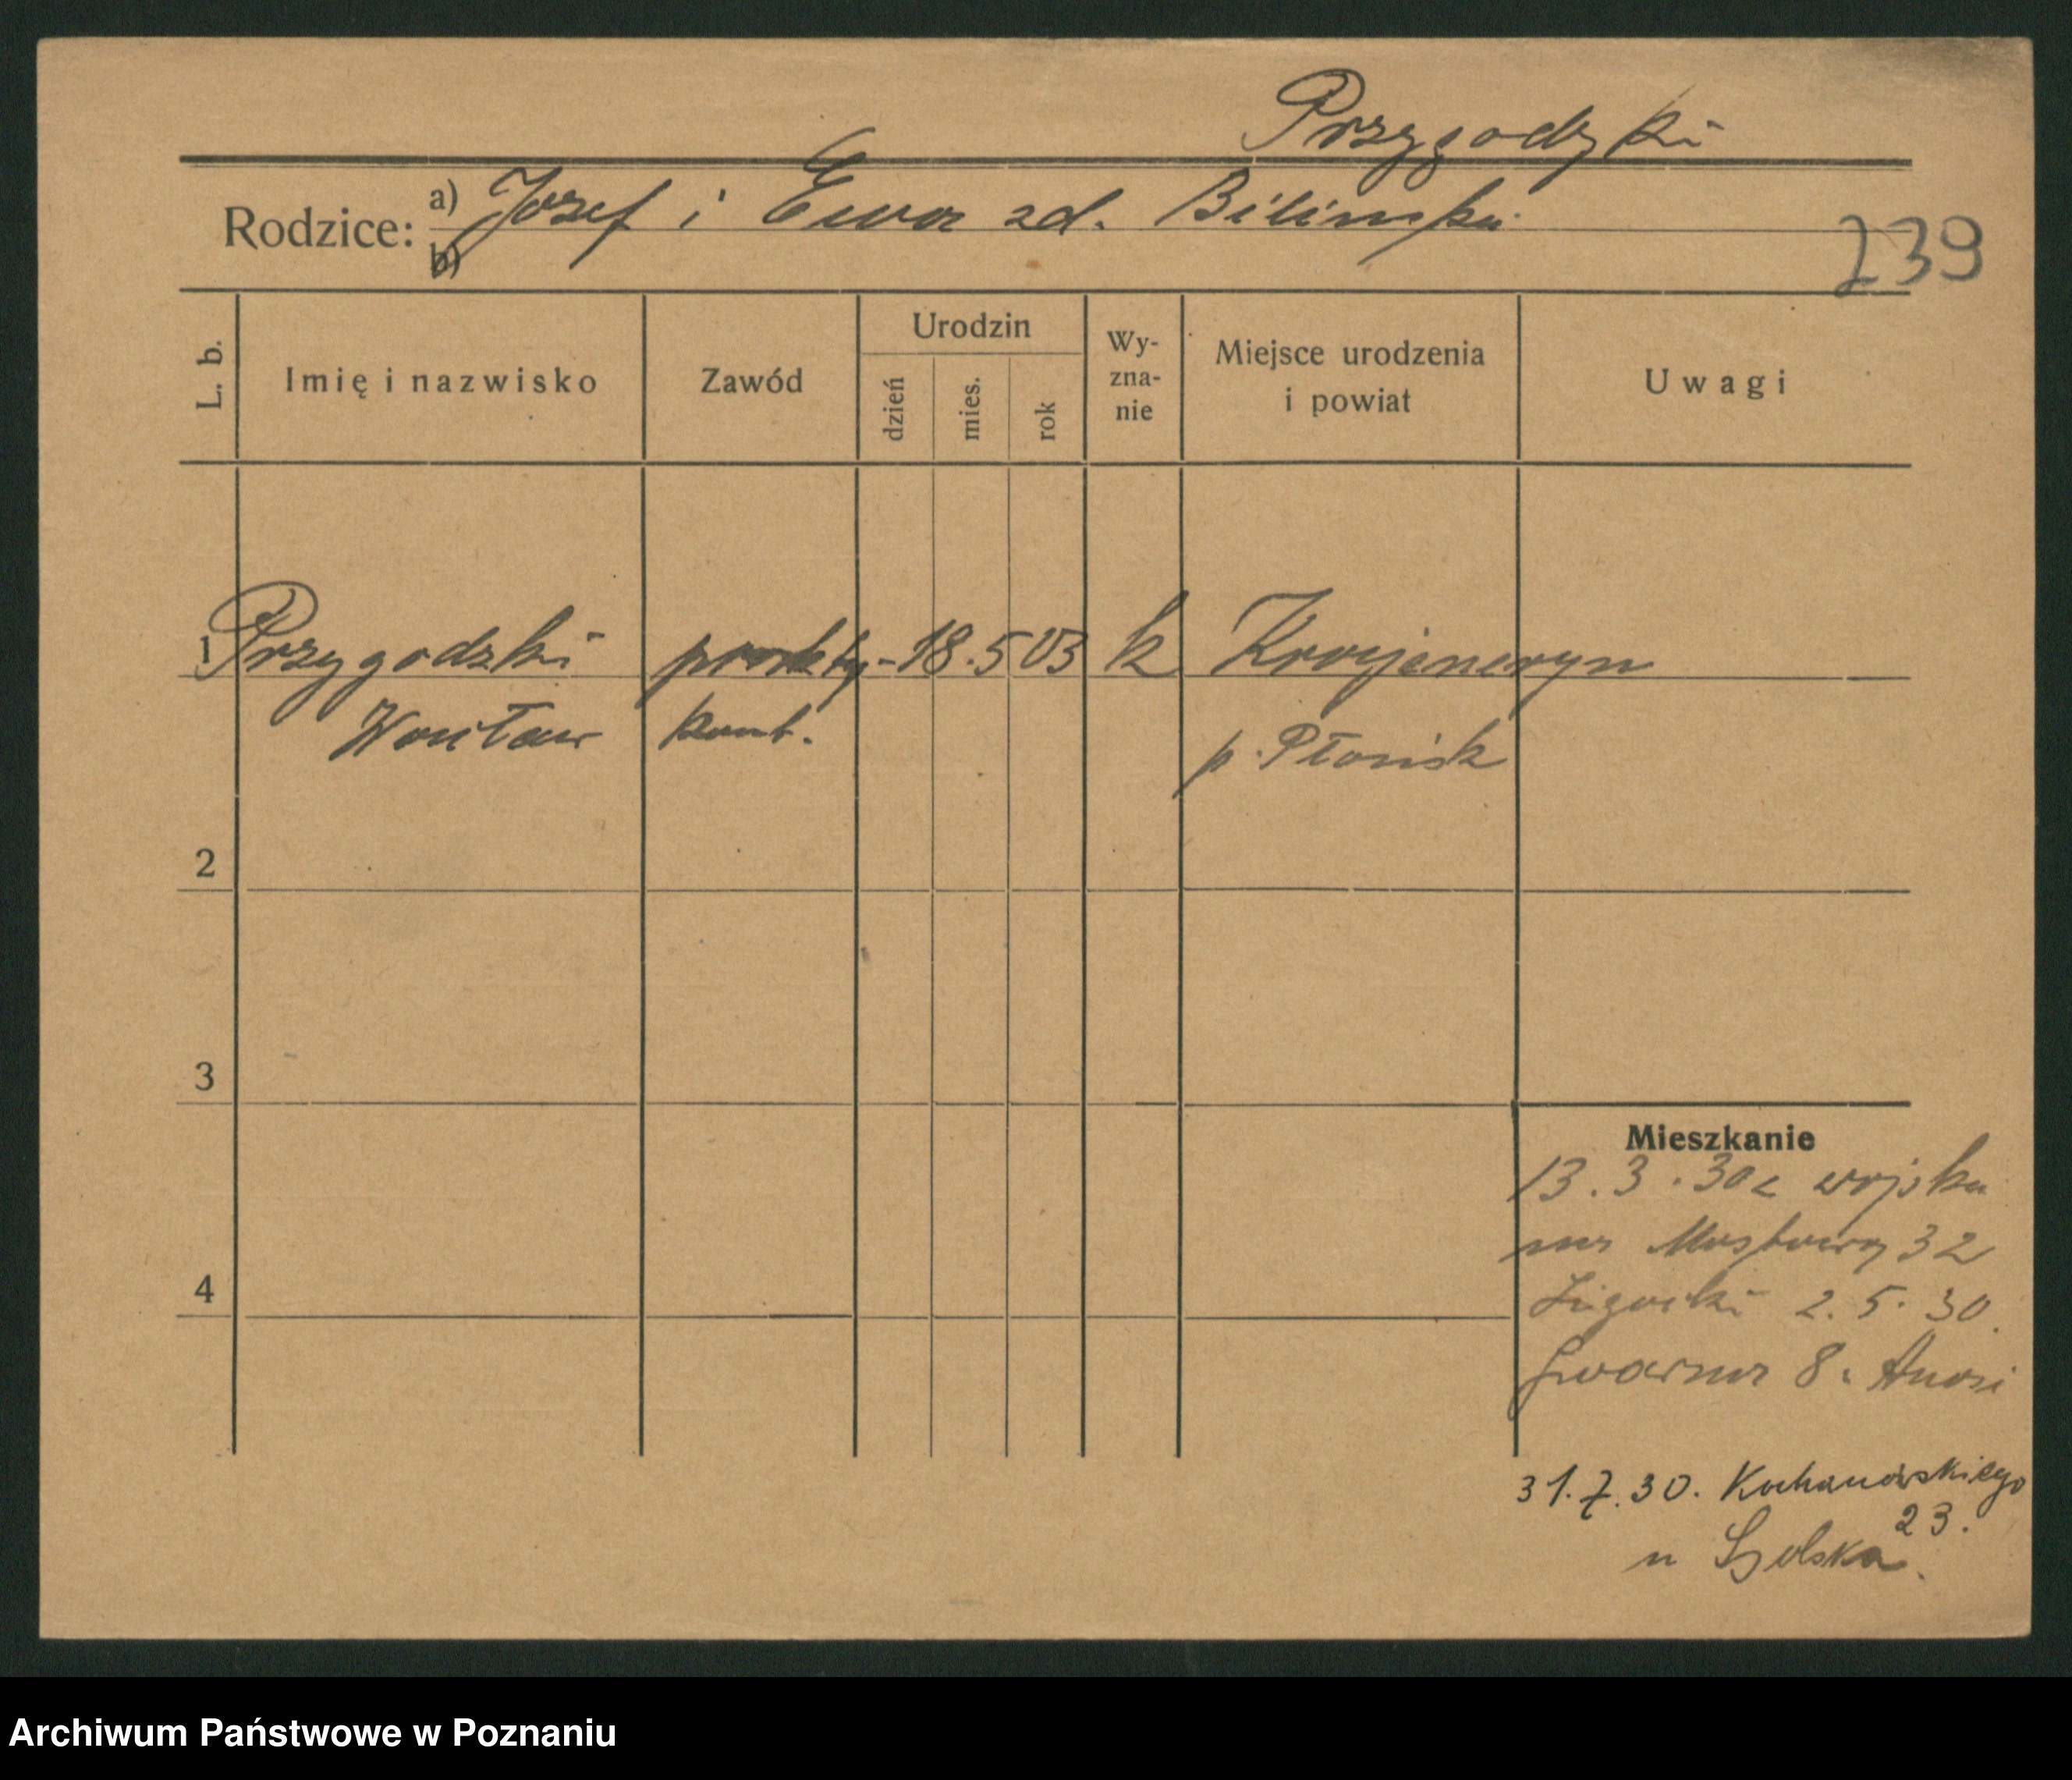 Przygodzki
Rodzice: a) Józef i Ewa zd. Bilinska
b)
239
L. b.
Imię i nazwisko
Zawód
Urodzin
dzień
mies.
rok
Wy-
zna-
nie
Miejsce urodzenia
i powiat
Uwagi
1 Przygodzki prakty- 18. 5 03 k
Wacław p. Płońsk
2
3
4
Mieszkanie
13. 3. 30 z wojska
Mostowa 32
2. 5. 30.
Gwarna 8
31. 7. 30. Kochanowskiego
23.
u
Archiwum Państwowe w Poznaniu